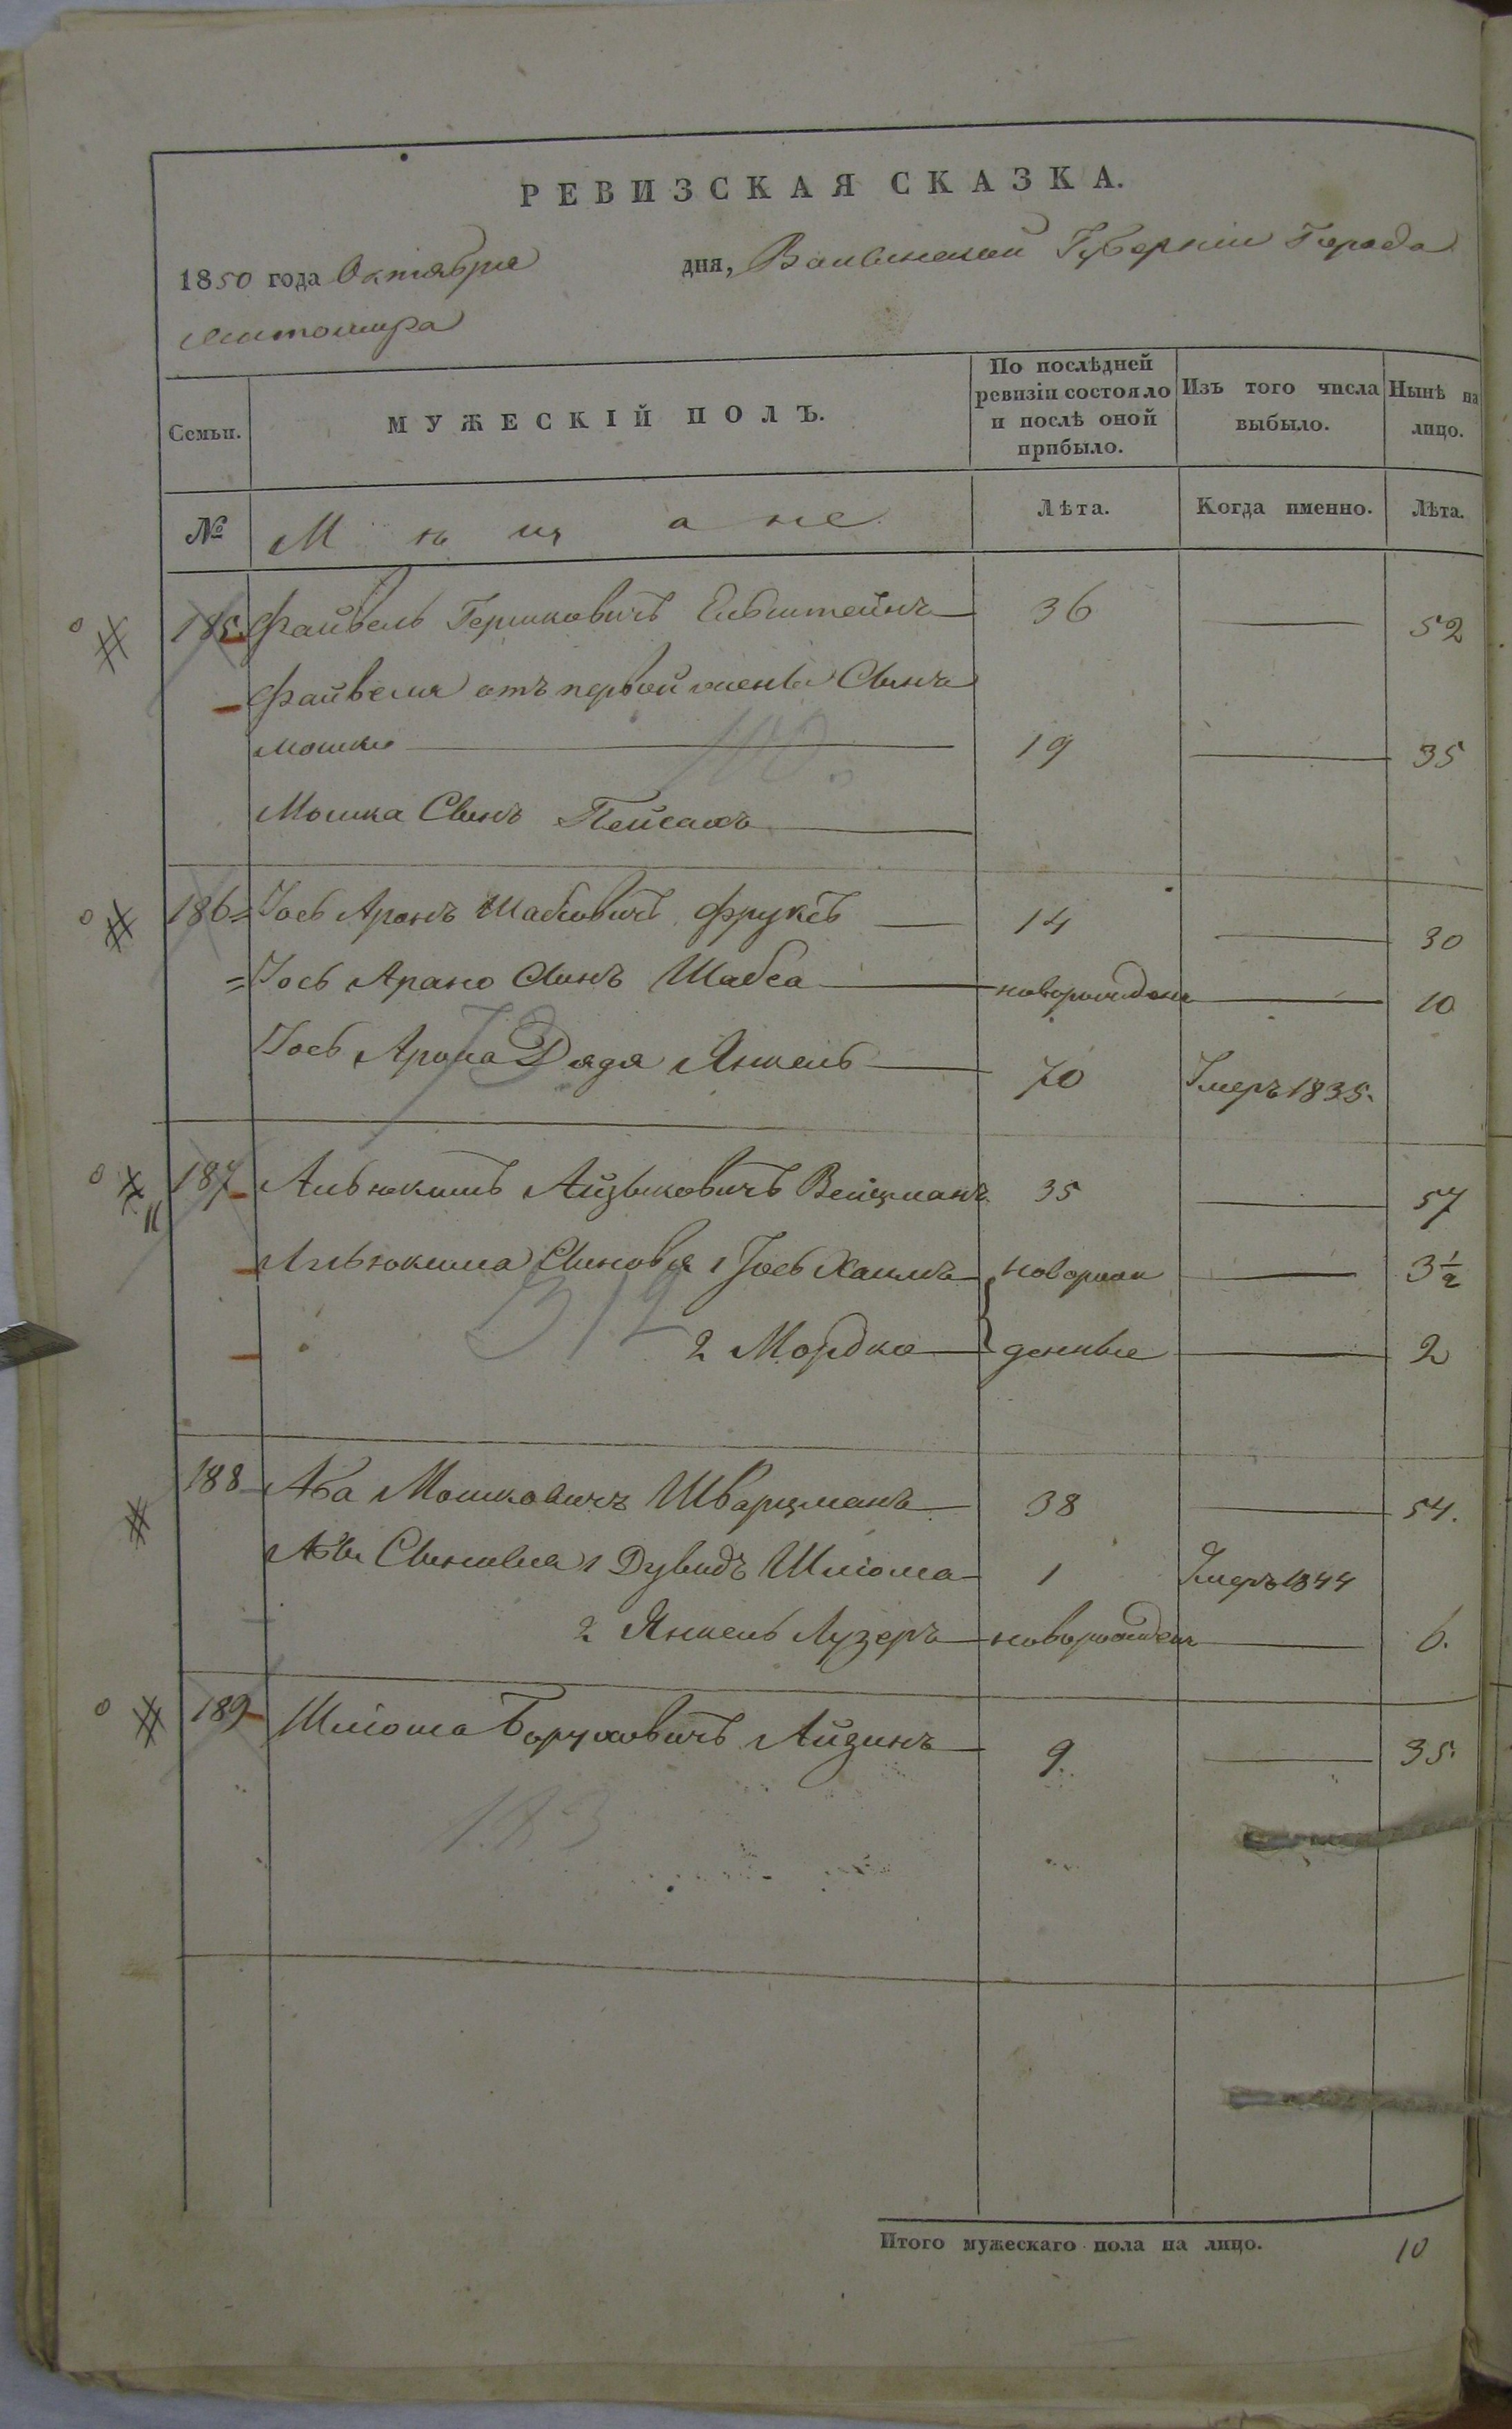 РЕВИЗСКАЯ СКАЗКА.
1850 года Октября дня, Волынской Губернии Города
Житомира
Семьи. МУЖЕСКІЙ ПОЛЪ. По послѣдней ревизіи состояло и послѣ оной прибыло. Изъ того числа выбыло. Нынѣ на лицо.
№ Мѣщане Лѣта. Когда именно. Лѣта.
185. Файвель Гершковичъ Епштейнъ 36 52
Файвеля отъ первой жены Сынъ
Мошко 19 35
Мошка Сынъ Пейсахъ
186 Іось Аронъ Шабсовичъ Фруктъ 14 30
Іось Арано Сынъ Шабса новорожденъ 10
Іось Арона Дядя Янкель 70 Умеръ 1835.
187 Айзыковичъ Вейцманъ 35 57
Сыновья 1 Іось Хаимъ новорож 3 1/2
2 Мордко денные 2
312
188 Аба Мошковичъ Шварцманъ 38 54.
Абы Сыновья 1 Дувидъ Шліома 1 Умеръ 1844
2 Янкель Лузеръ новорожденъ 6.
189 Шліома Боруховичъ Айзинъ 9. 35.
183
Итого мужескаго пола на лицо. 10